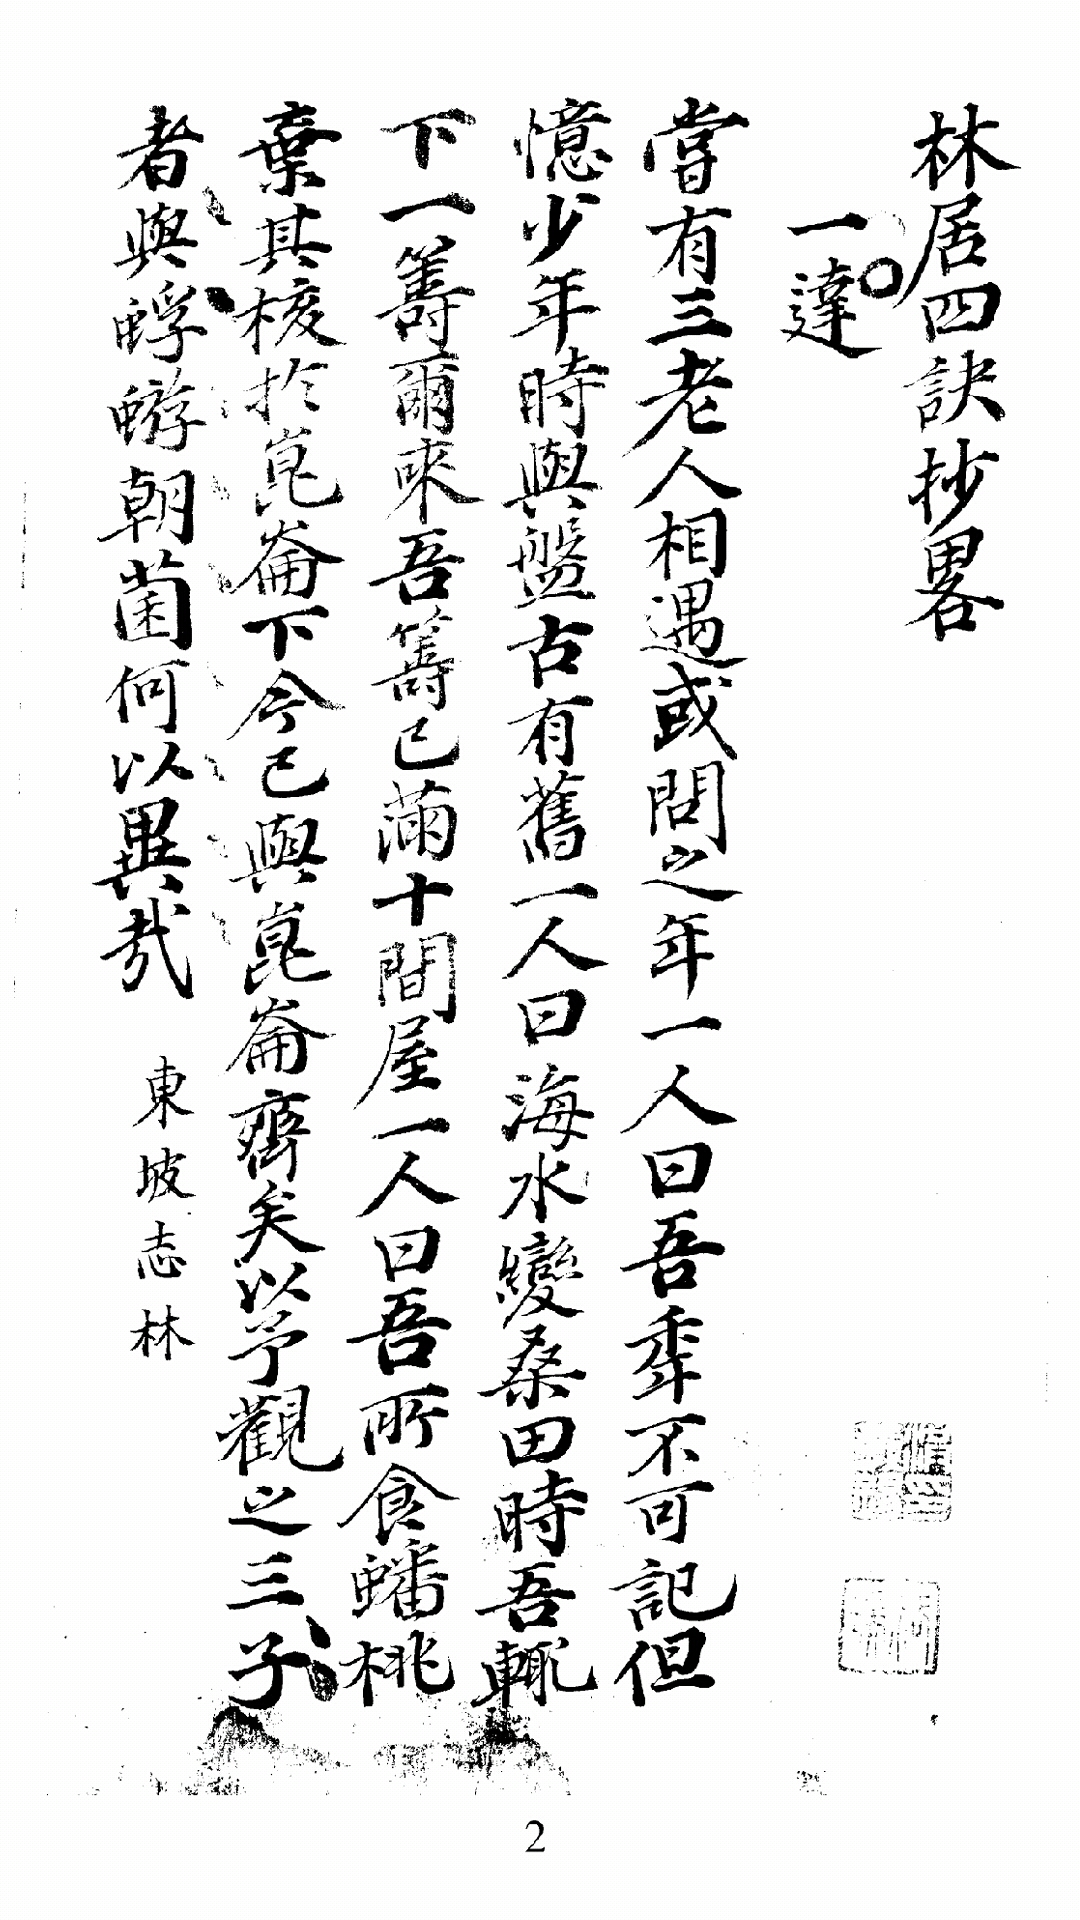 林居四訣抄畧
一達
嘗有三老人相遇或問之年一人曰吾年不可記但
憶少年時與盤古有舊一人曰海水變桑田時吾輒
下一籌爾來吾籌已滿十間屋一人曰吾所食蟠桃
棄其核於崑崙下今已與崑崙齊矣以予觀之三子
者與蜉蝣朝菌何以異哉 東坡志林
2